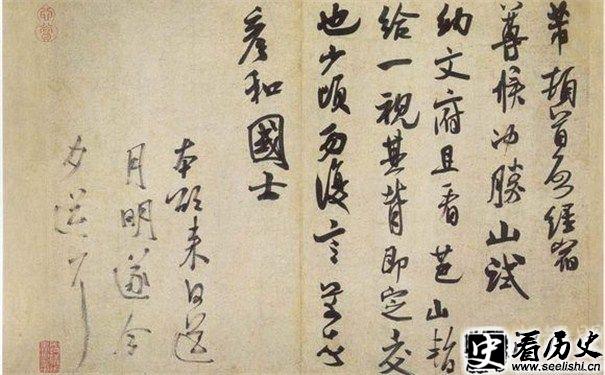 芾頓首启經宿
尊候沖勝山試
納文府且看芭山暫
給一視其背即定交
也少頃勿復言芾頓首
彥和國士
本欲來日送
月明遂今
夕送耳
看历史
www.seelishi.cn